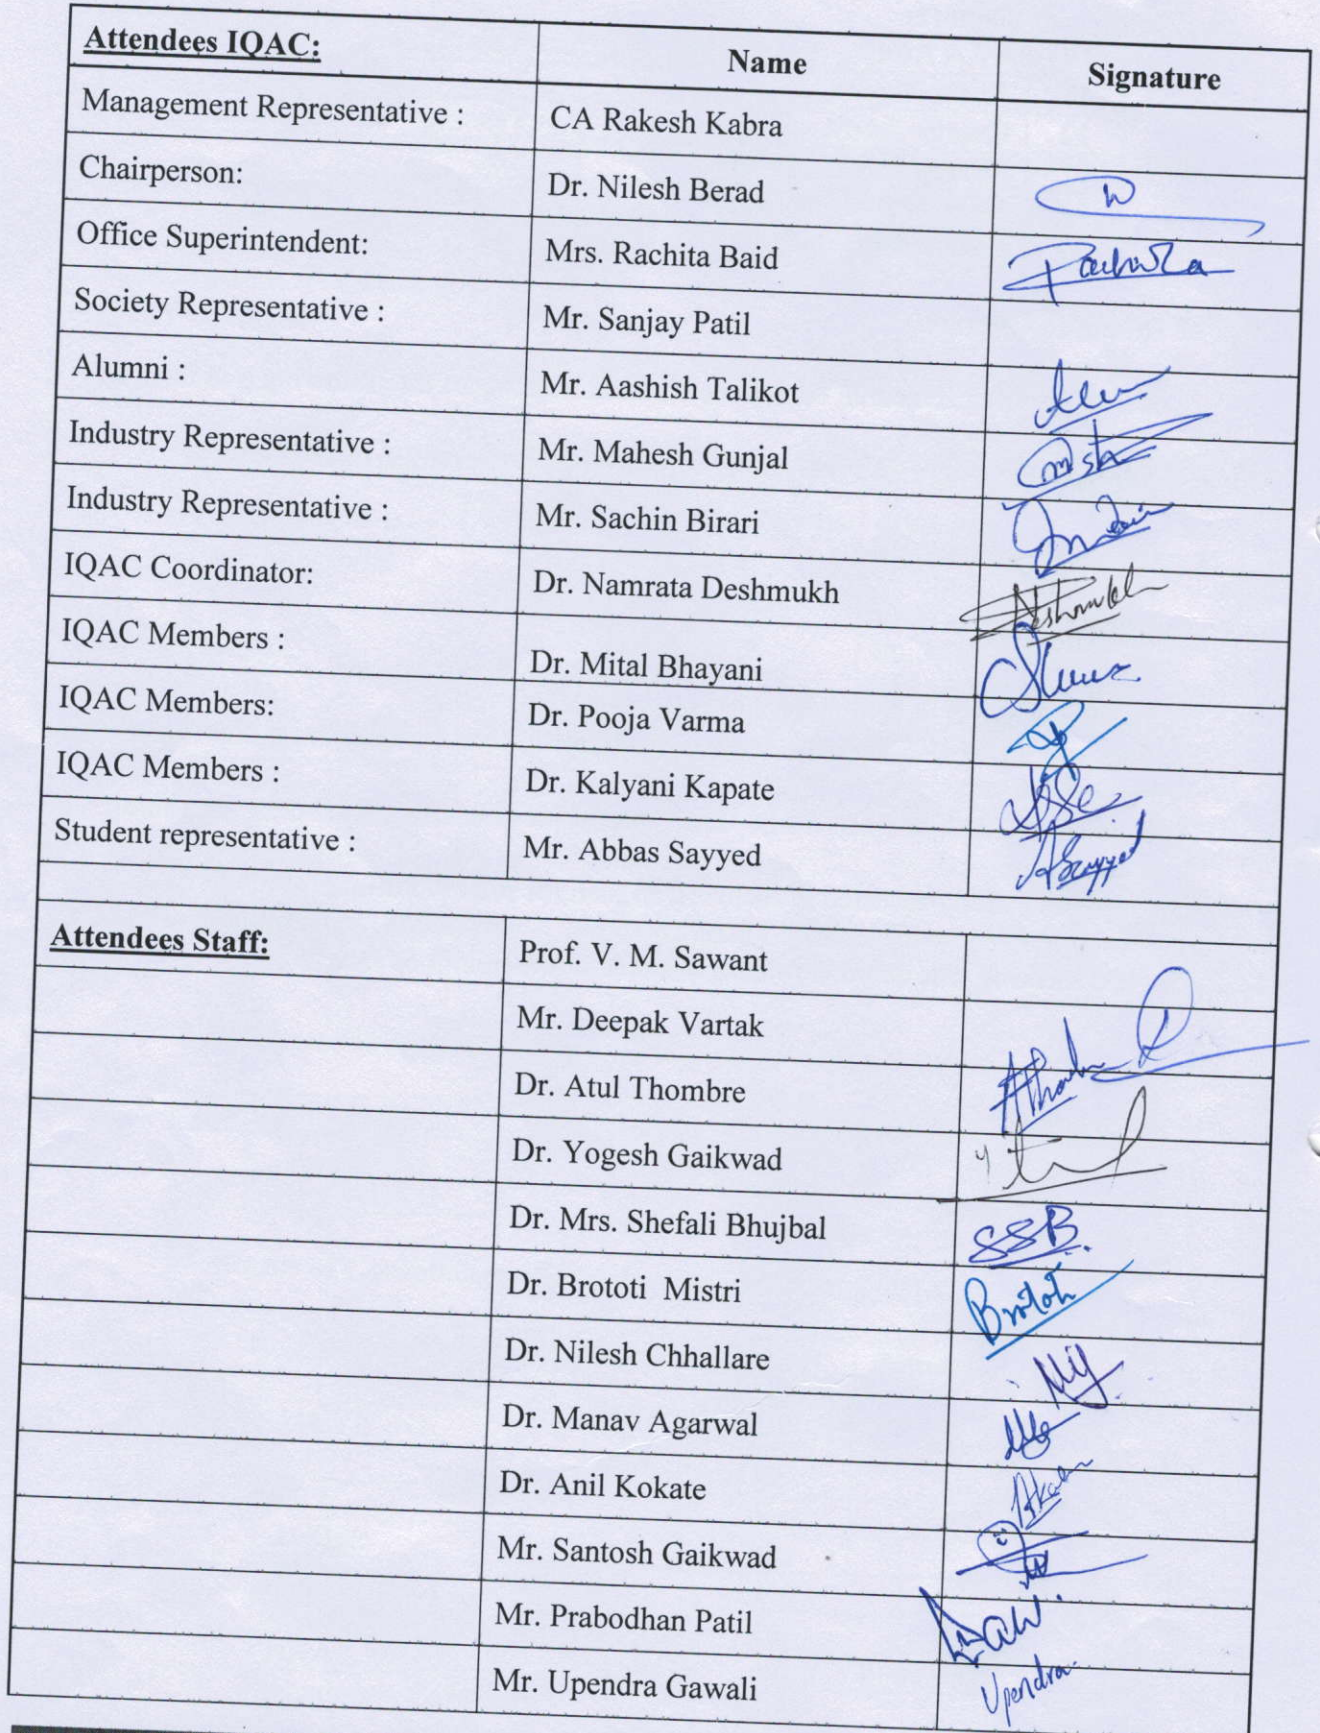 Attendees IQAC: Name Signature
Management Representative : CA Rakesh Kabra
Chairperson: Dr. Nilesh Berad
Office Superintendent: Mrs. Rachita Baid Rachita
Society Representative : Mr. Sanjay Patil
Alumni : Mr. Aashish Talikot
Industry Representative : Mr. Mahesh Gunjal
Industry Representative : Mr. Sachin Birari
IQAC Coordinator: Dr. Namrata Deshmukh Deshmukh
IQAC Members : Dr. Mital Bhayani
IQAC Members: Dr. Pooja Varma
IQAC Members : Dr. Kalyani Kapate
Student representative : Mr. Abbas Sayyed ASayyed
Attendees Staff: Prof. V. M. Sawant
Mr. Deepak Vartak
Dr. Atul Thombre
Dr. Yogesh Gaikwad
Dr. Mrs. Shefali Bhujbal SSB.
Dr. Brototi Mistri Brototi
Dr. Nilesh Chhallare
Dr. Manav Agarwal
Dr. Anil Kokate
Mr. Santosh Gaikwad
Mr. Prabodhan Patil
Mr. Upendra Gawali Upendra.